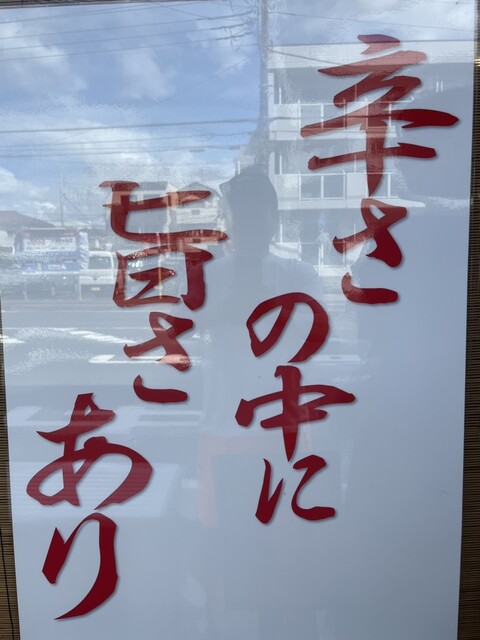 辛さ
の中に
旨さ
あり